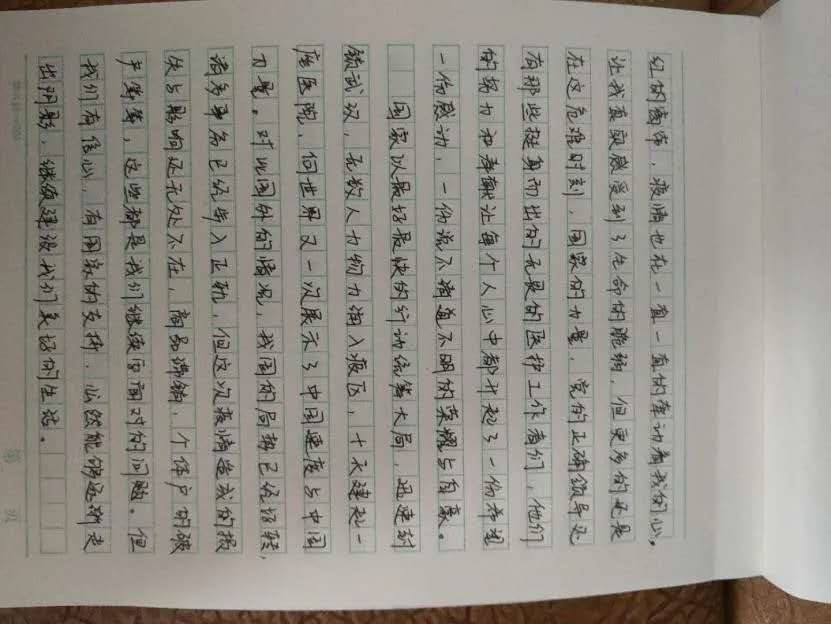 红的痛帝，疫情也在一直一直的牵动着我的心，
让我真实感受到了生命的脆弱，但更多的还是
在这危难时刻，国家的力量，党的正确领导还
有那些挺身而出的无畏的医护工作者们，他们
的努力和奉献让每个人心中都升起了一份希望
一份感动，一份说不清道不明的荣耀与自豪。
国家以最好最快的行动统筹大局，迅速封
锁武汉，无数人力物力涌入疫区，十天建起一
座医院，向世界又一次展示了中国速度与中国
力量。对比国外的情况，我国的局势已经好转，
诸多事务已经步入正轨，但这次疫情造成的损
失与影响还无处不在，商品滞销，个体户的破
产等等，这些都是我们继续要面对的问题。但
我们有信心，有国家的支持，必然能够逐渐走
出阴影，继续建设我们美好的生活。